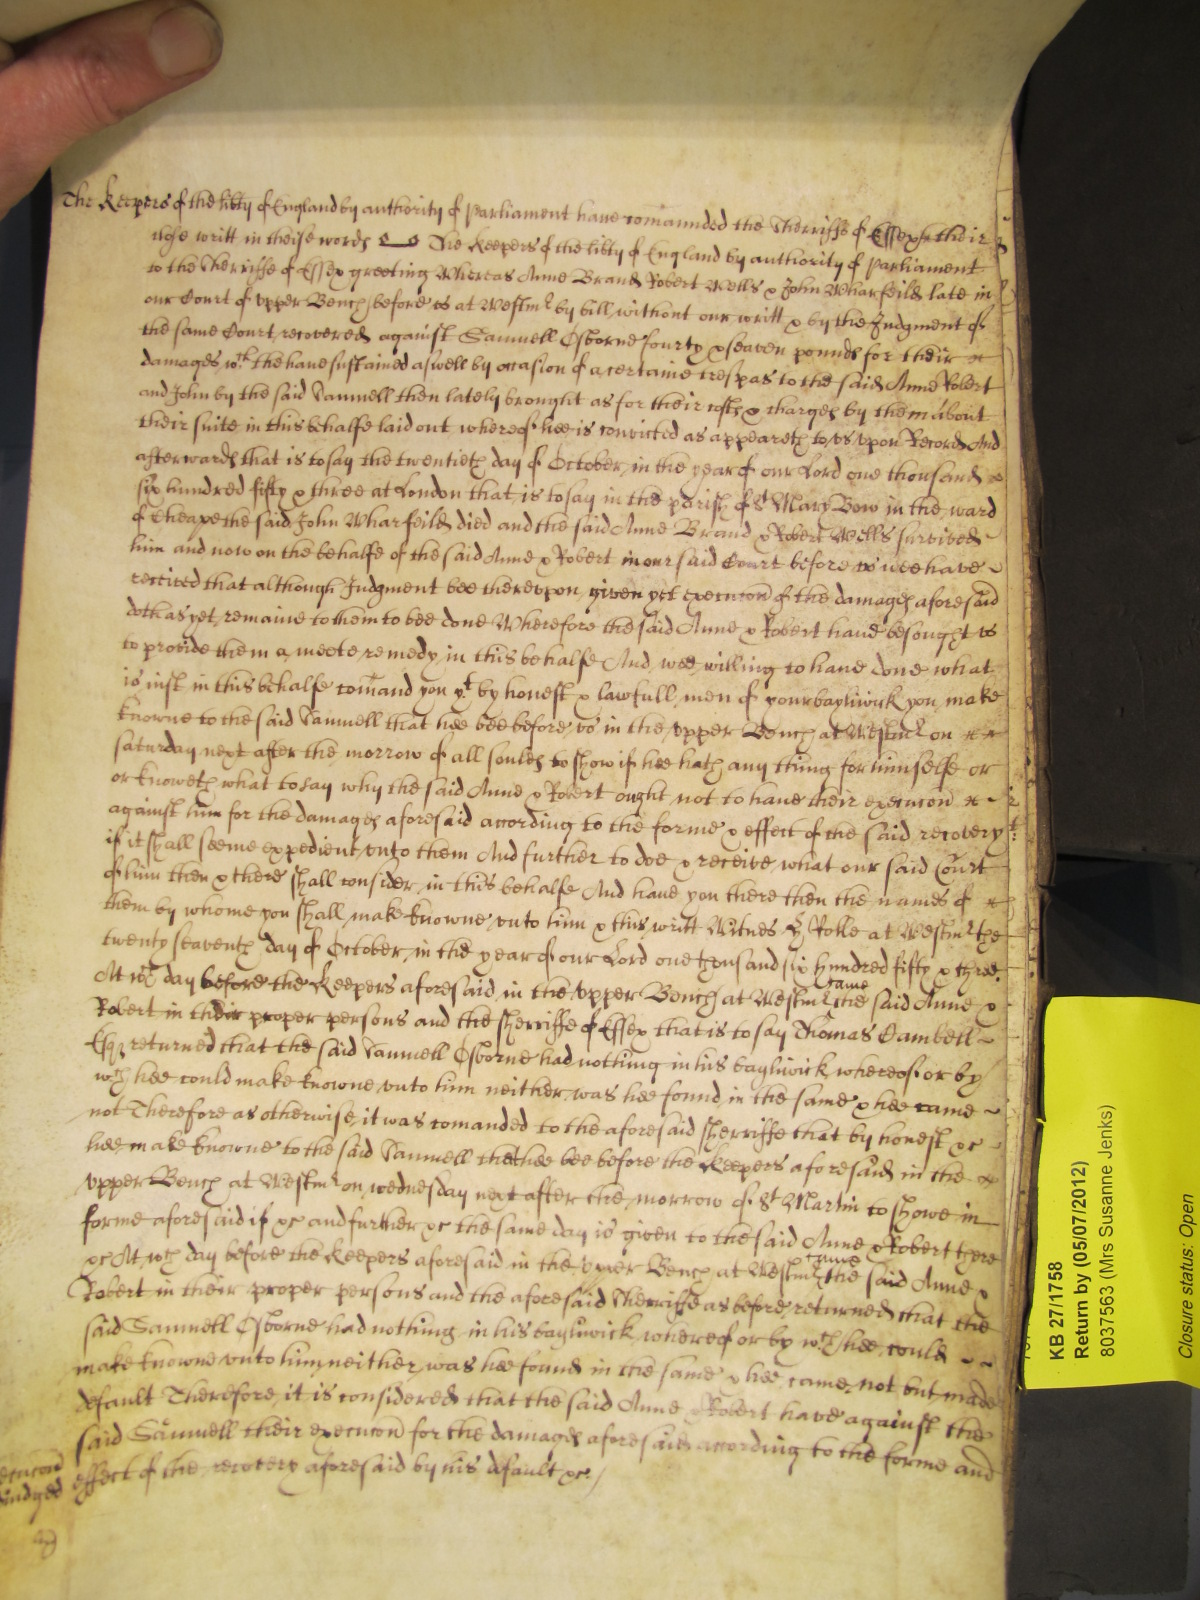 The Keepers of the libty of England by authority of Parliament have comaunded the Sherriffe of Essex their
close writt in theise words The Keepers of the libty of England by authority of Parliament
to the Sherriffe of Essex greeting Whereas Anne Brand Robert Wells & John Wharfeild late in
our Court of vpper Bench before vs at Westmr by bill without our writt & by the Judgment of
the same Court recovered against Samuell Osborne fourty & seaven pounds for their
damages wch the have susteined aswell by occasion of a certaine trespas to the said Anne Robert
and John by the said Samuell then lately brought as for their costs & charges by them about
their suite in this behalfe laid out whereof hee is convicted as appeareth to vs vpon Record And
afterwards that is to say the twentieth day of October in the year of our Lord one thousand
six hundred fifty & three at London that is to say in the parish of St Mary Bow in the ward
of Cheape the said John Wharfeild died and the said Anne Brand & Robert Wells survived
him and now on the behalfe of the said Anne & Robert in our said Court before vs wee have
received that although Judgment bee therevpon given yet execucon of the damages aforesaid
doth as yet remaine to them to bee done Wherefore the said Anne & Robert have besought vs
to provide them a meete remedy in this behalfe And wee willing to have done what
is iust in this behalfe comand you yt by honest & lawfull men of your bayliwick you make
knowne to the said Samuell that hee bee before vs in the vpper Bench at Westmr on
saturday next after the morrow of all soules to show if hee hath any thing for himselfe or
or knoweth what to say why the said Anne & Robert ought not to have their execucon
against him for the damages aforesaid according to the forme & effect of the said recovery
if it shall seeme expedient vnto them And further to doe & receive what our said Court
of him then & there shall consider in this behalfe And have you there then the names of
them by whome you shall make knowne vnto him & this writt Witnes H Rolle at Westmr the
twenty seaventh day of October in the year of our Lord one thousand six hundred fifty & three.
At wch day before the Keepers aforesaid in the vpper Bench at Westmr came the said Anne &
Robert in their proper persons and the sherriffe of Essex that is to say Thomas Cambell
Esqr returned that the said Samuell Osborne had nothing in his bayliwick whereof or by
wch hee could make knowne vnto him neither was hee found in the same & hee came
not Therefore as otherwise it was comanded to the aforesaid sherriffe that by honest &c
hee make knowne to the said Samuell that hee bee before the Keepers aforesaid in the
vpper Bench at Westmr on wednesday next after the morrow of St Martin to showe in
forme aforesaid if &c and further &c the same day is given to the said Anne & Robert there
&c At wch day before the Keepers aforesaid in the vpper Bench at Westmr came the said Anne &
Robert in their proper persons and the aforesaid Sherriffe as before returned that the
said Samuell Osborne had nothing in his bayliwick whereof or by wch hee could
make knowne vnto him neither was hee found in the same & hee came not but made
default Therefore it is considered that the said Anne & Robert have against the
said Samuell their execucon for the damages aforesaid according to the forme and
effect of the recovery aforesaid by his default &c
KB 27/1758
Return by (05/07/2012)
8037563 (Mrs Susanne Jenks)
Closure status: Open